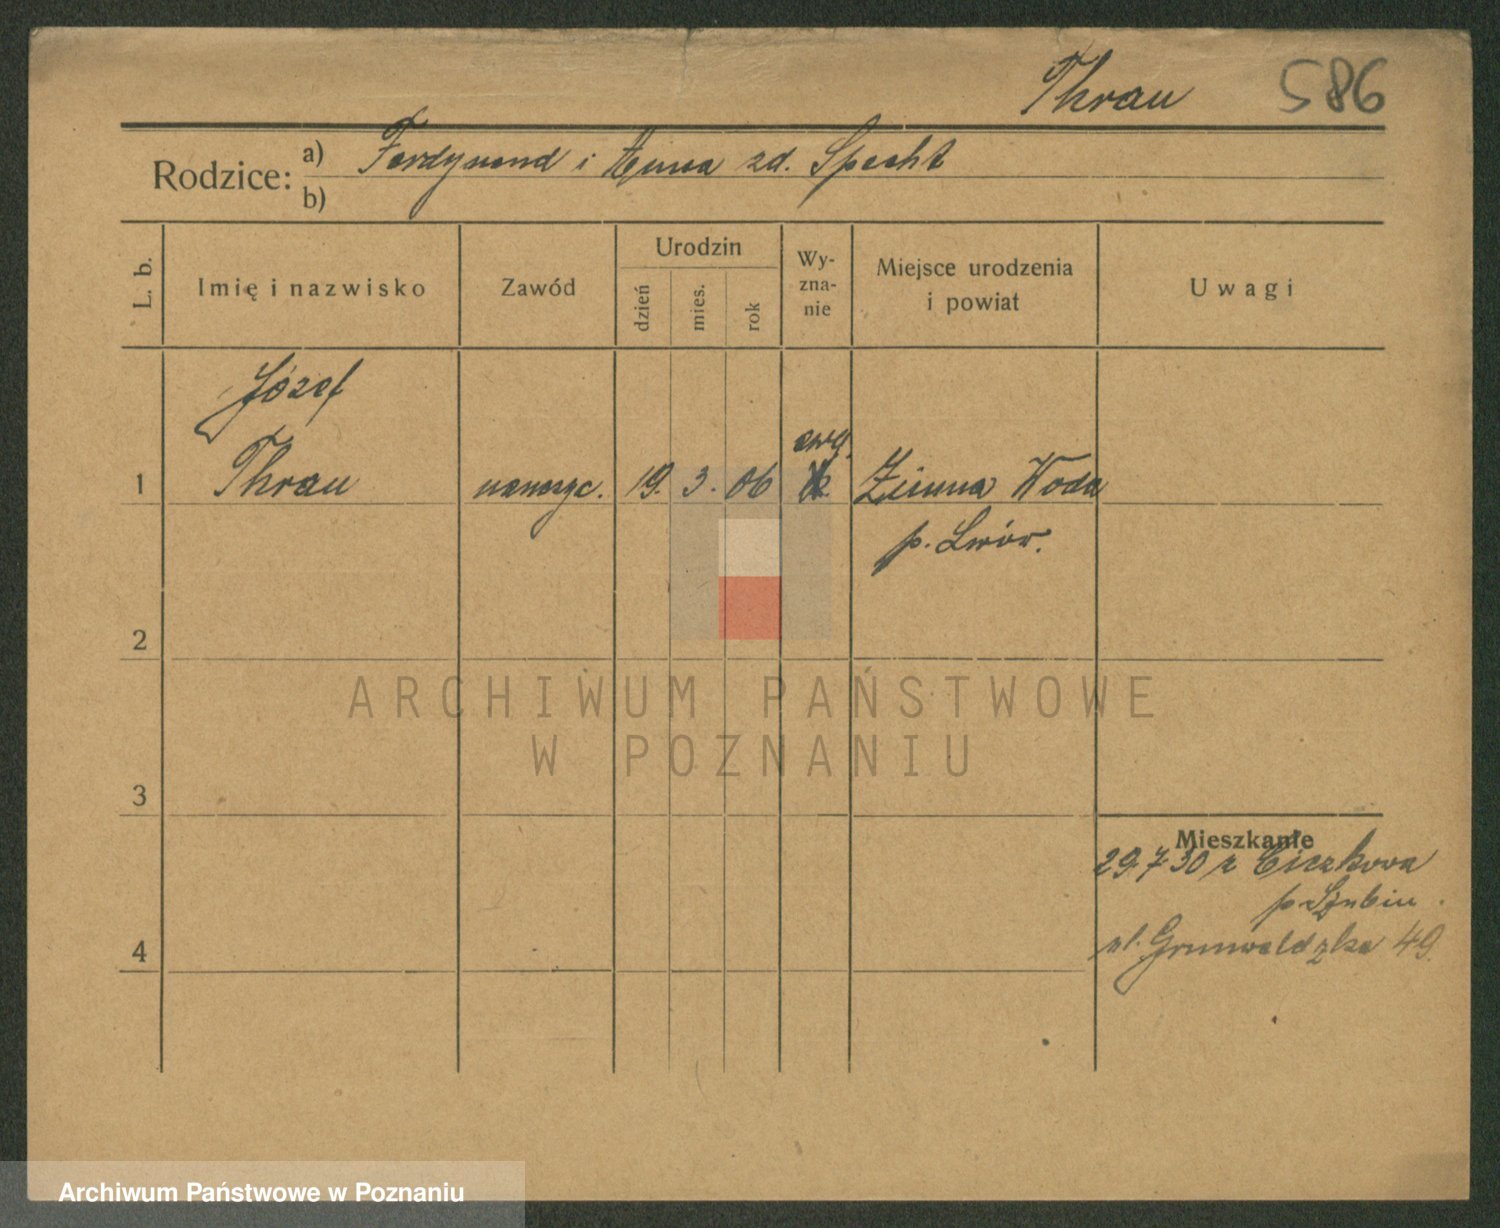 Thrau 586
Rodzice: a) Ferdynand i Anna zd. Specht
b)
L. b.
Imię i nazwisko
Zawód
Urodzin
dzień
mies.
rok
Wy-
zna-
nie
Miejsce urodzenia
i powiat
Uwagi
Józef
ewg.
1 Thrau nauczyc. 19. 3. 06 Zimna Woda
p. Lwów.
2
ARCHIWUM PAŃSTWOWE
W POZNANIU
3
Mieszkanie
29 7 30 z
p. Szubin.
4 ul. Grunwaldzka 49.
Archiwum Państwowe w Poznaniu